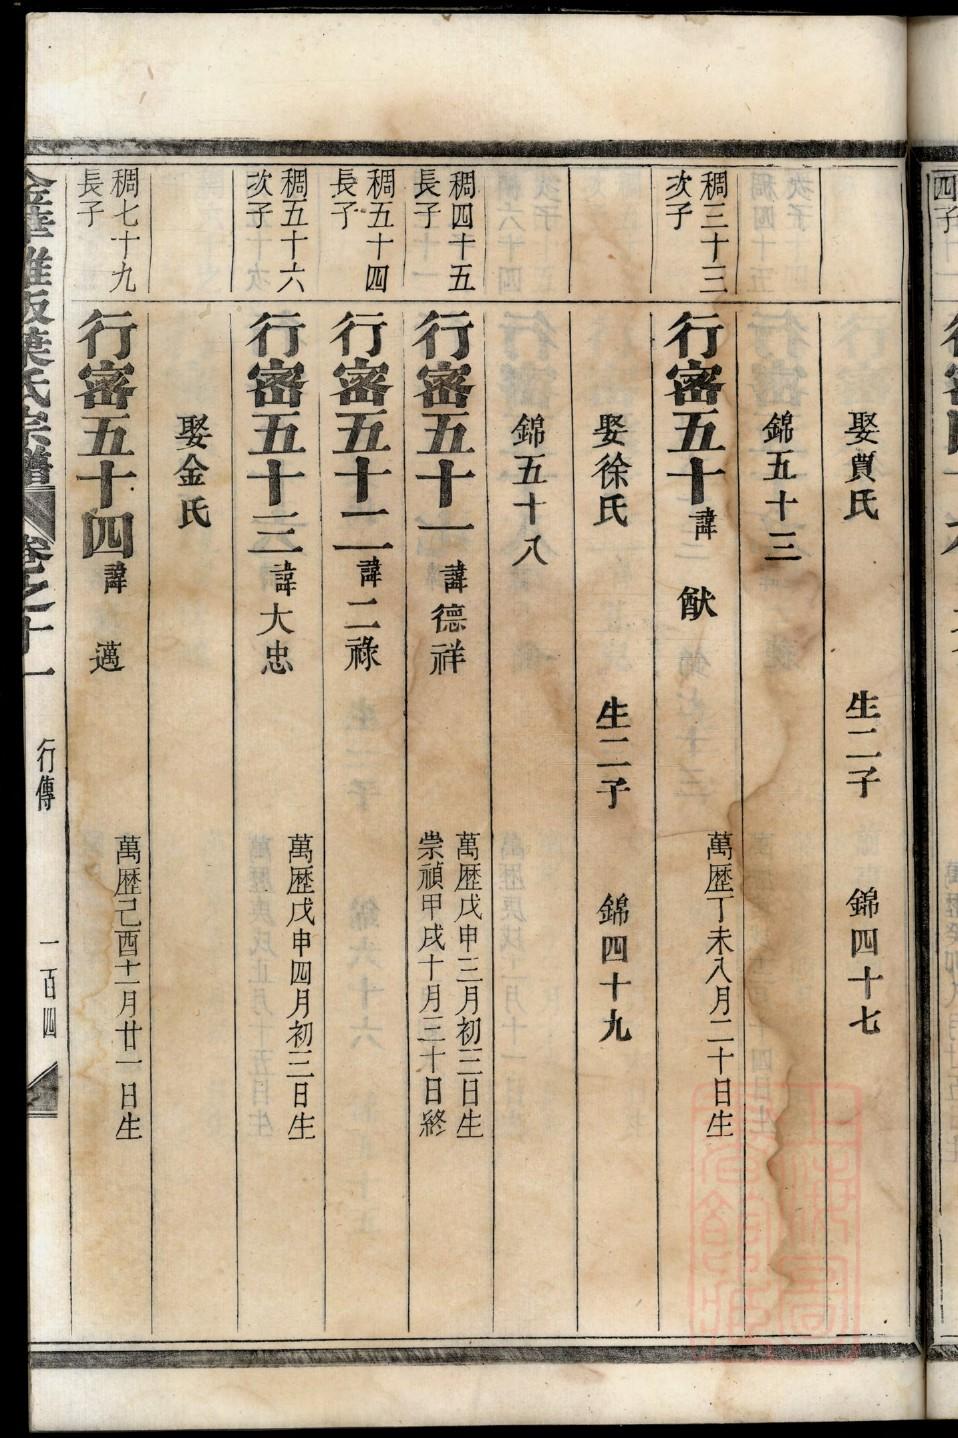 四子
娶賈氏 生二子 錦四十七
錦五十三
稠三十三
次子
行密五十諱 猷 萬歷丁未八月二十日生
娶徐氏 生二子 錦四十九
錦五十八
稠四十五
長子
行密五十一諱德祥 萬歷戊申三月初三日生
崇禎甲戌十月三十日終
稠五十四
長子
行密五十二諱二祿
稠五十六
次子
行密五十三諱大忠 萬歷戊申四月初三日生
娶金氏
稠七十九
長子
行密五十四諱 邁 萬歷己酉十一月廿一日生
金華雅畈葉氏宗譜 卷之十一 行傳 一百四